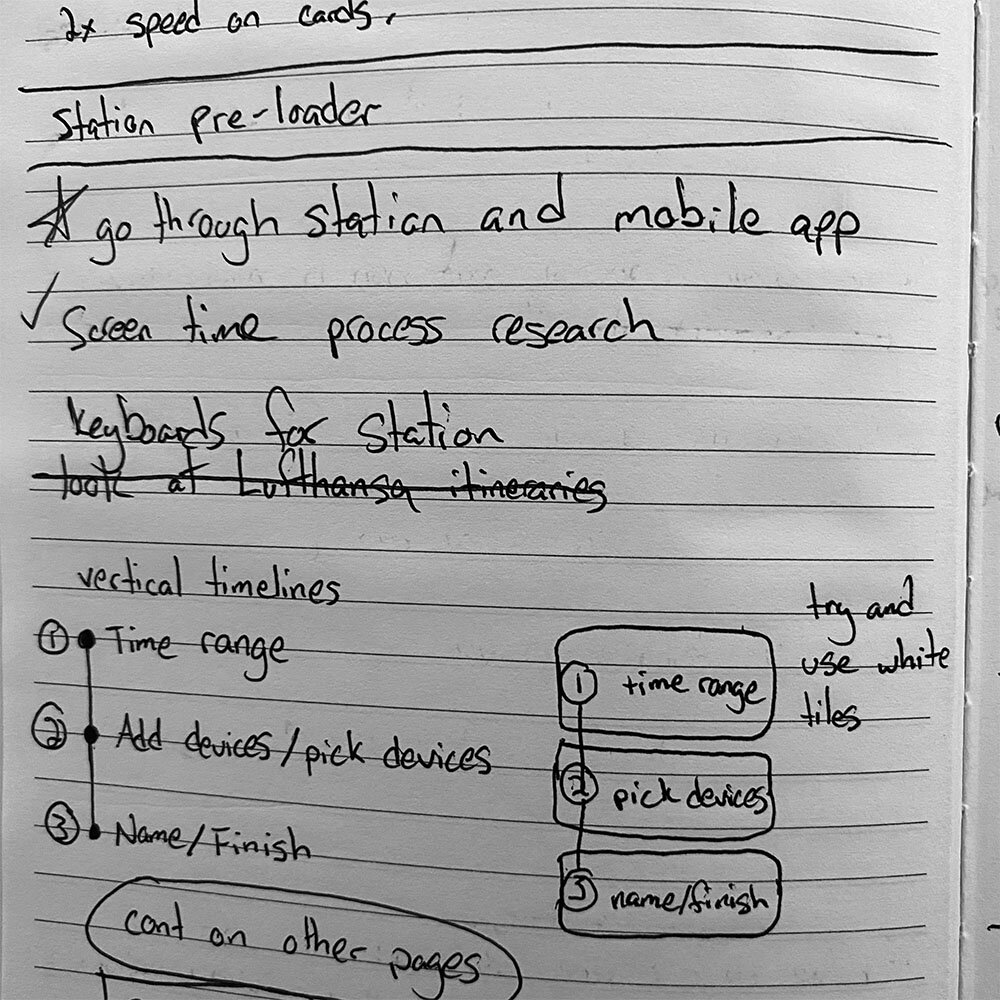 2x speed on cards.
Station pre-loader
go through Station and mobile app
Screen time process research
Keyboards for Station
look at Lufthansa itineraries
vertical timelines
1 Time range
2 Add devices/pick devices
3 Name/Finish
try and
use white
tiles
1 time range
2 pick devices
3 name/finish
cont on other pages